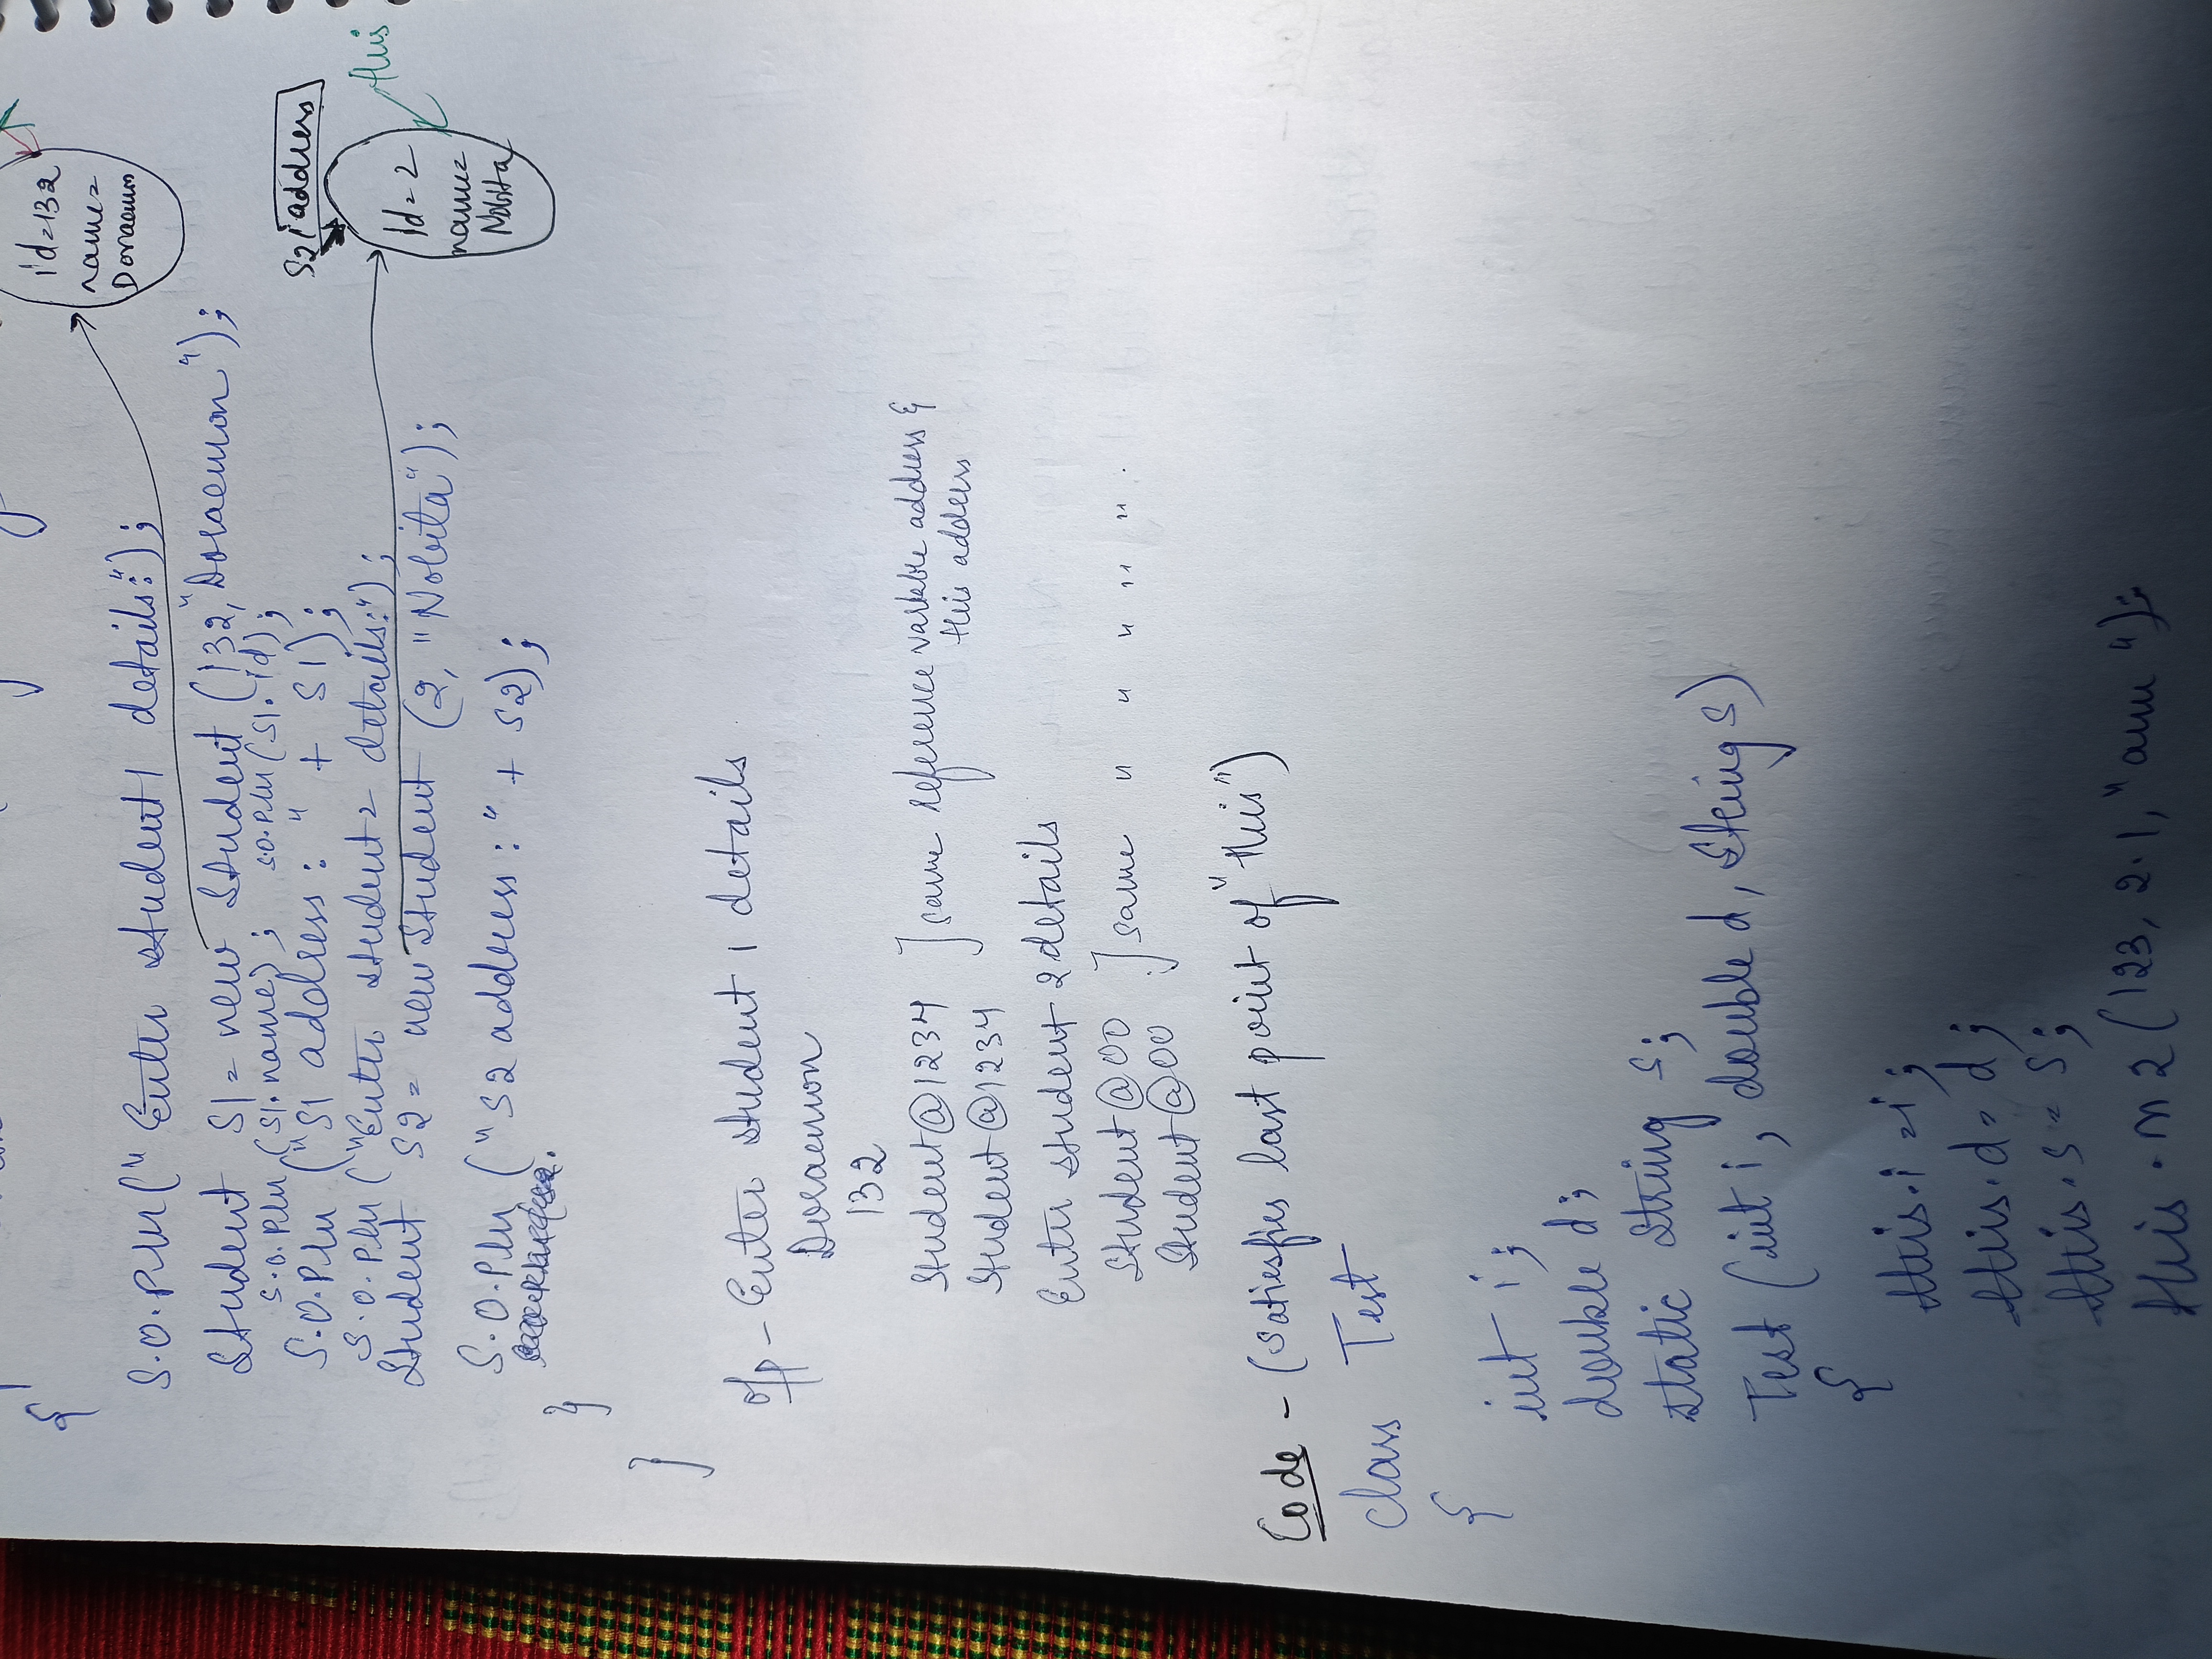 {
S.O.Pln(" Enter student 1 details:");
Student S1 = new Student (132,"Doraemon");
S.O.Pln(S1.name); S.O.Pln(S1.id);
S.O.Pln ("S1 address: " + S1);
S.O.Pln ("Enter student 2 details:");
Student S2 = new Student (2, "Nobita");
S.O.Pln ("S2 address:" + S2);
}
}
id=132
name=
Doraemon
S2 address
Id=2
name=
Nobita
this
O/p - Enter student 1 details
Doraemon
132
Student@1234
Student@1234
] same reference variable address &
this address
Enter student 2 details
Student@00
Student@00
] same " " " " " .
Code - (Satiesfies last point of "this")
Class Test
{
int i;
double d;
static String s;
Test (int i, double d, String s)
{
this.i = i;
this.d = d;
this.s = s;
this.m2(123, 2.1, "am");